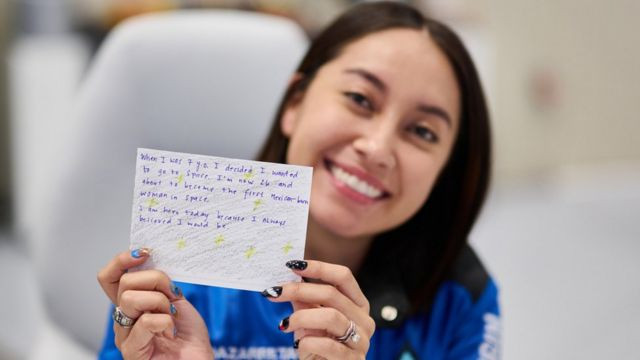 When I was 7 y.o. I decided I wanted
to go to space. I'm now 26 and
about to become the first Mexican-born
woman in space.
I am here today because I always
believed I would be.